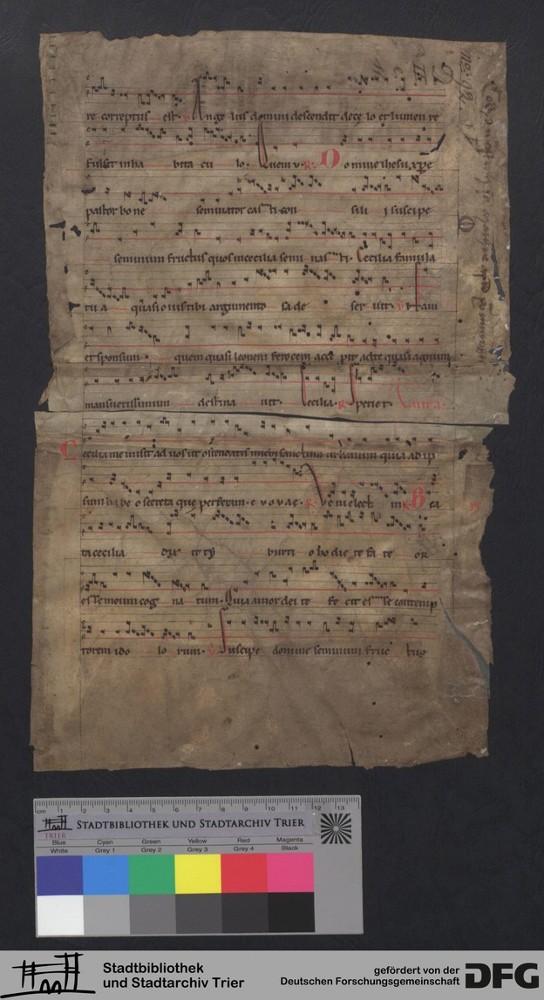 re correptus est Ange lus domini descendit de ce lo et lumen re
fulsit in ha bita cu lo Quem v R D omine ihesu xpe
pastor bone seminator cas ti con sili i suscipe
seminum fructus quos in cecilia semi nas ti Cecilia famula
tua quasi o uis tibi argumento sa de ser uit V Nam
et sponsum quem quasi leonem ferocem acce pit ad te quasi agnum
mansuetissimum destina uit Cecilia R
C ecilia me misit ad uos ut ostendatis michi sanctum urbanum quia ad ip
sum ha be o secreta que perferam e v o v a e V eni elect in R B ea
ta cecilia dix it ty burti o ho di e te fa te or
es se meum cog na tum Quia amor dei te fe cit es se contemp
torem ido lo rum V Suscipe domine seminum fruc tus
cm 1 2 3 4 5 6 7 8 9 10 11 12 13
TRIER
STADTBIBLIOTHEK UND STADTARCHIV TRIER
Blue Cyan Green Yellow Red Magenta
White Grey 1 Grey 2 Grey 3 Grey 4 Black
Stadtbibliothek
und Stadtarchiv Trier
gefördert von der
Deutschen Forschungsgemeinschaft
DFG